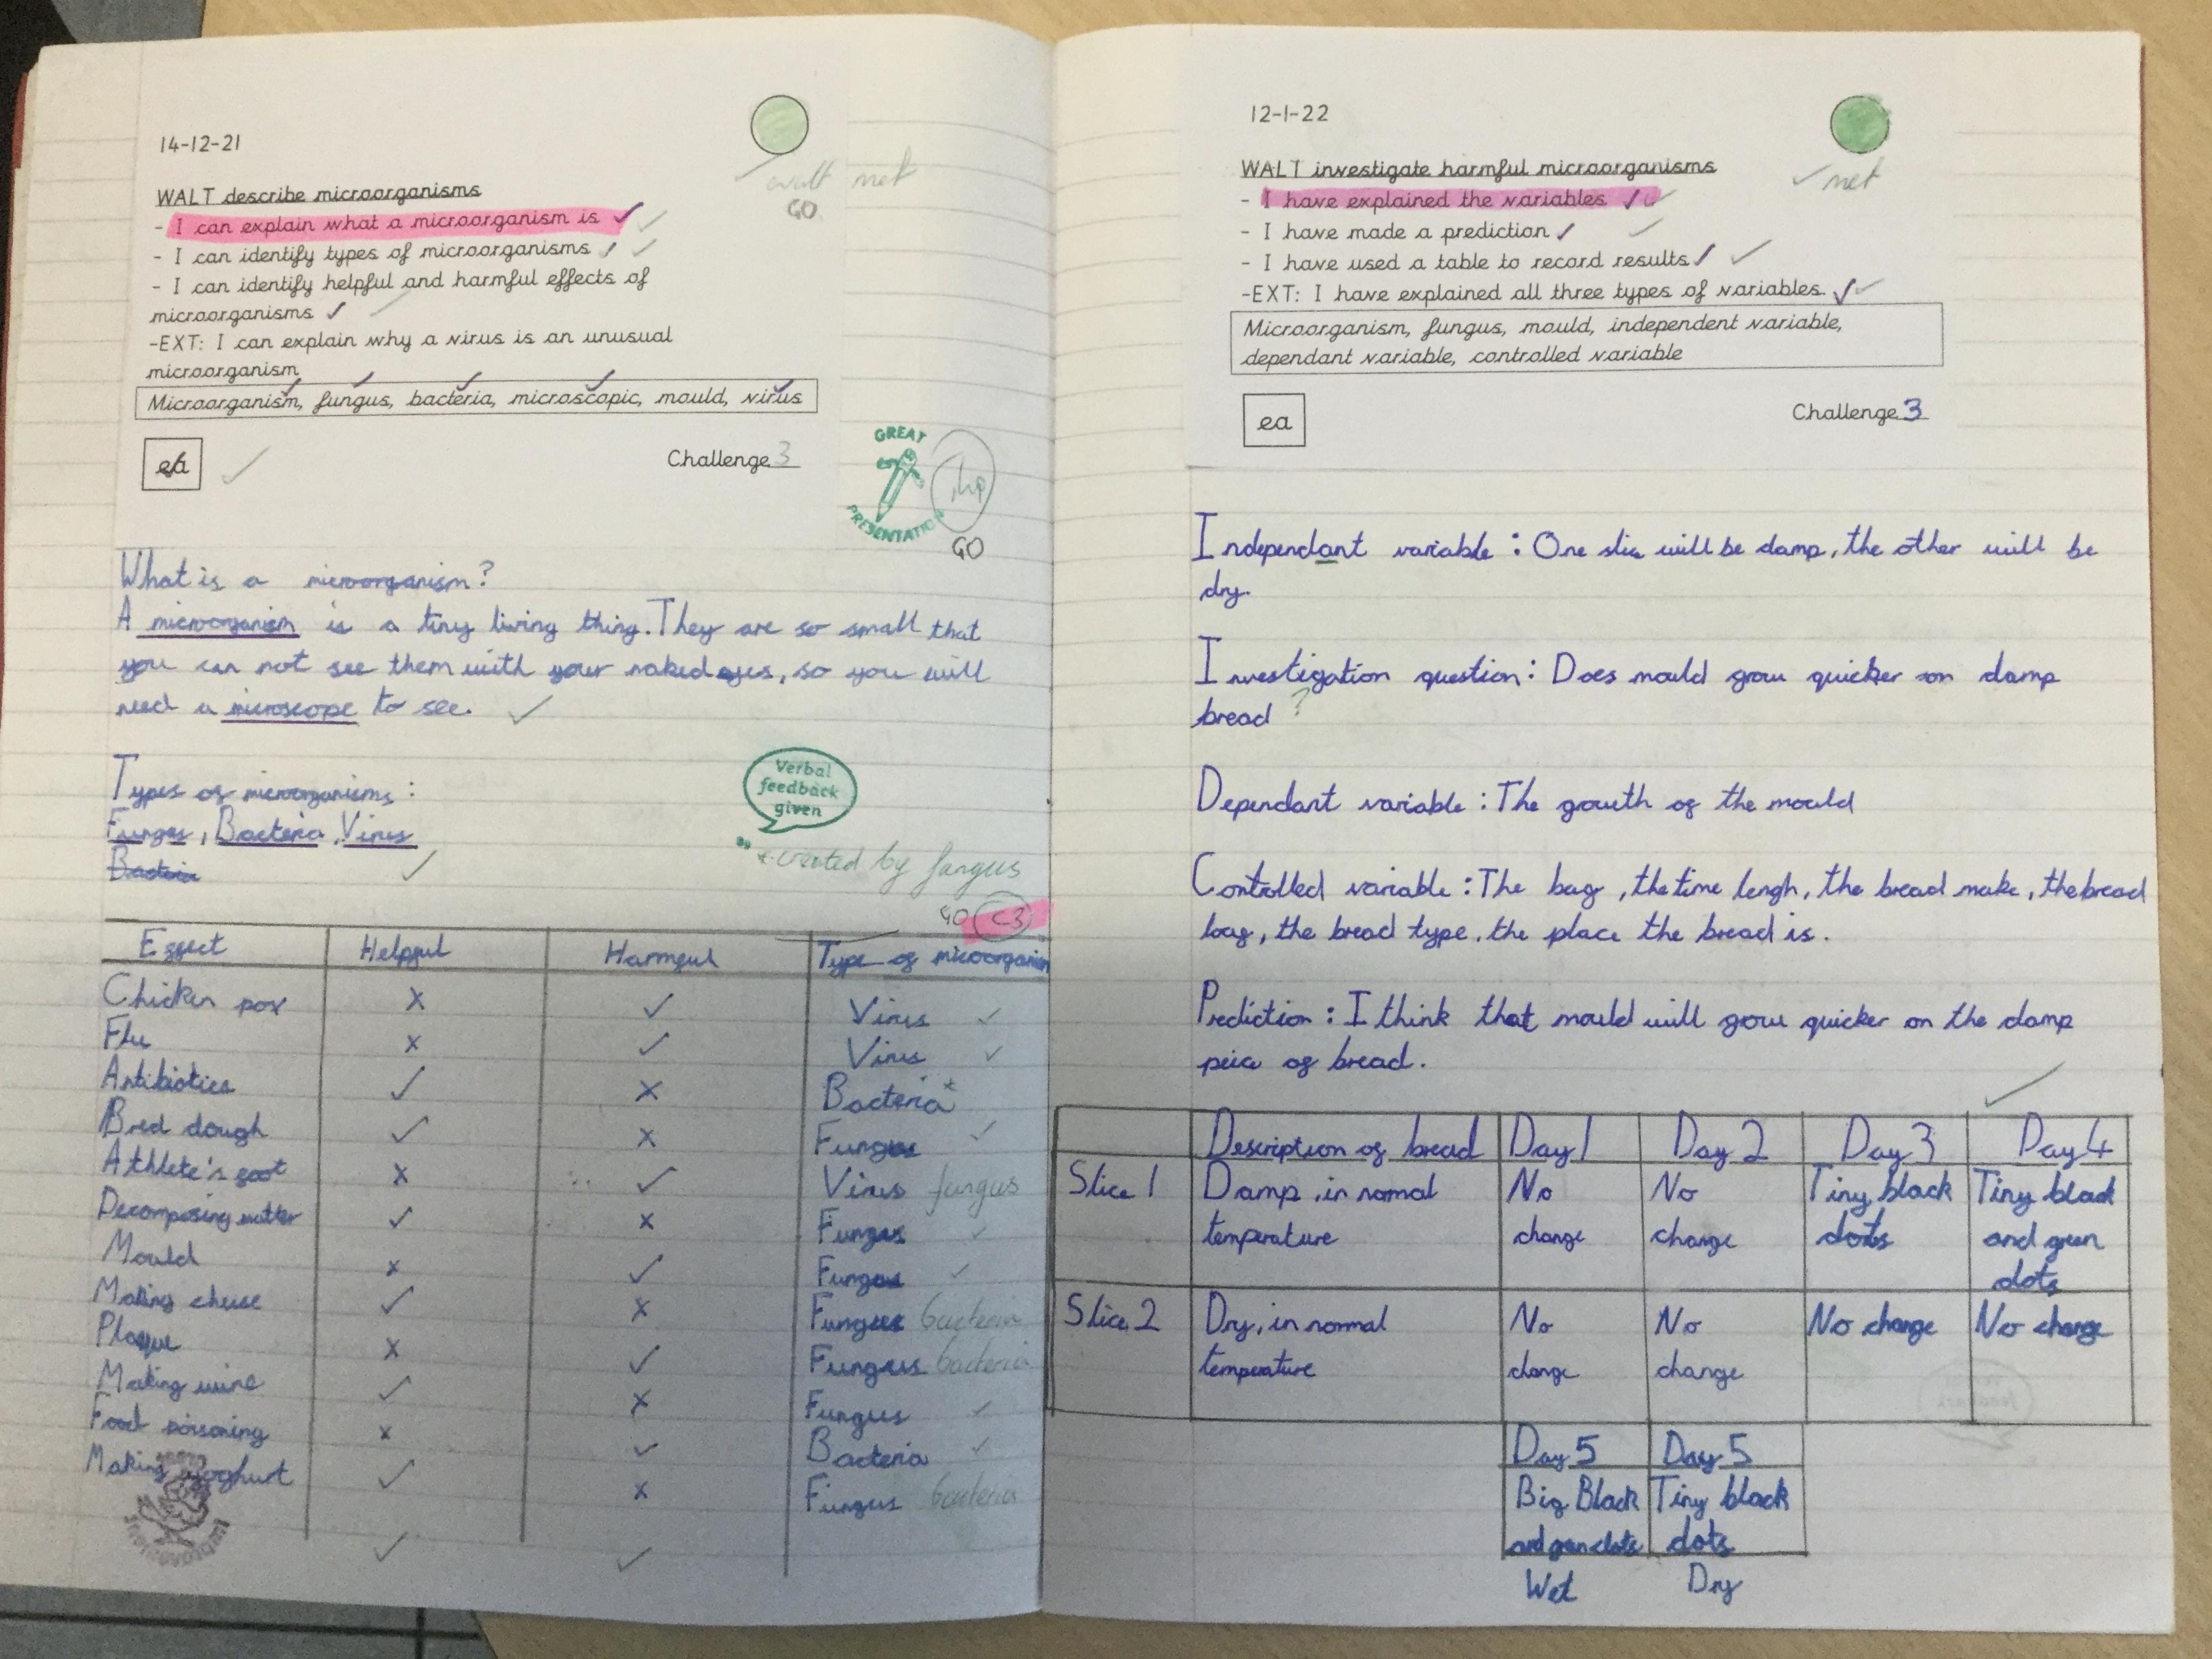 14-12-21
WALT describe microorganisms
- I can explain what a microorganism is
- I can identify types of microorganisms
- I can identify helpful and harmful effects of
microorganisms
-EXT: I can explain why a virus is an unusual
microorganism
Microorganism, fungus, bacteria, microscopic, mould, virus
ea
Challenge 3
walt met
GO
GREAT
PRESENTATION
GO
What is a microorganism?
A microorganism is a tiny living thing. They are so small that
you can not see them with your naked eyes, so you will
need a microscope to see.
Types of microorganisms:
Funges, Bacteria, Virus
Verbal
feedback
given
* created by fungus
GO C3
Effect Helpful Harmful Type of microorganism
Chicken pox x ✓ Virus
Flu x ✓ Virus
Antibiotics ✓ x Bacteria *
Bred dough ✓ x Fungus
Athlete's foot x ✓ Virus fungus
Decomposing matter ✓ x Fungus
Mould x ✓ Fungus
Making cheese ✓ x Fungus bacteria
Plaque x ✓ Fungus bacteria
Making wine ✓ x Fungus
Food poisoning x ✓ Bacteria
Making yoghurt ✓ x Fungus bacteria
12-1-22
WALT investigate harmful microorganisms
- I have explained the variables
- I have made a prediction
- I have used a table to record results
-EXT: I have explained all three types of variables.
Microorganism, fungus, mould, independent variable,
dependant variable, controlled variable
ea
Challenge 3
met
Independant variable : One slice will be damp, the other will be
dry.
Investigation question: Does mould grow quicker on damp
bread ?
Dependant variable : The growth of the mould
Controlled variable : The bag, the time lengh, the bread make, the bread
loaf, the bread type, the place the bread is.
Prediction : I think that mould will grow quicker on the damp
peice of bread.
Description of bread Day 1 Day 2 Day 3 Day 4
Slice 1 Damp, in normal No No Tiny black Tiny black
temperature change change dots and green
dots
Slice 2 Dry, in normal No No No change No change
temperature change change
Day 5 Day 5
Big Black Tiny black
and green dots dots
Wet Dry